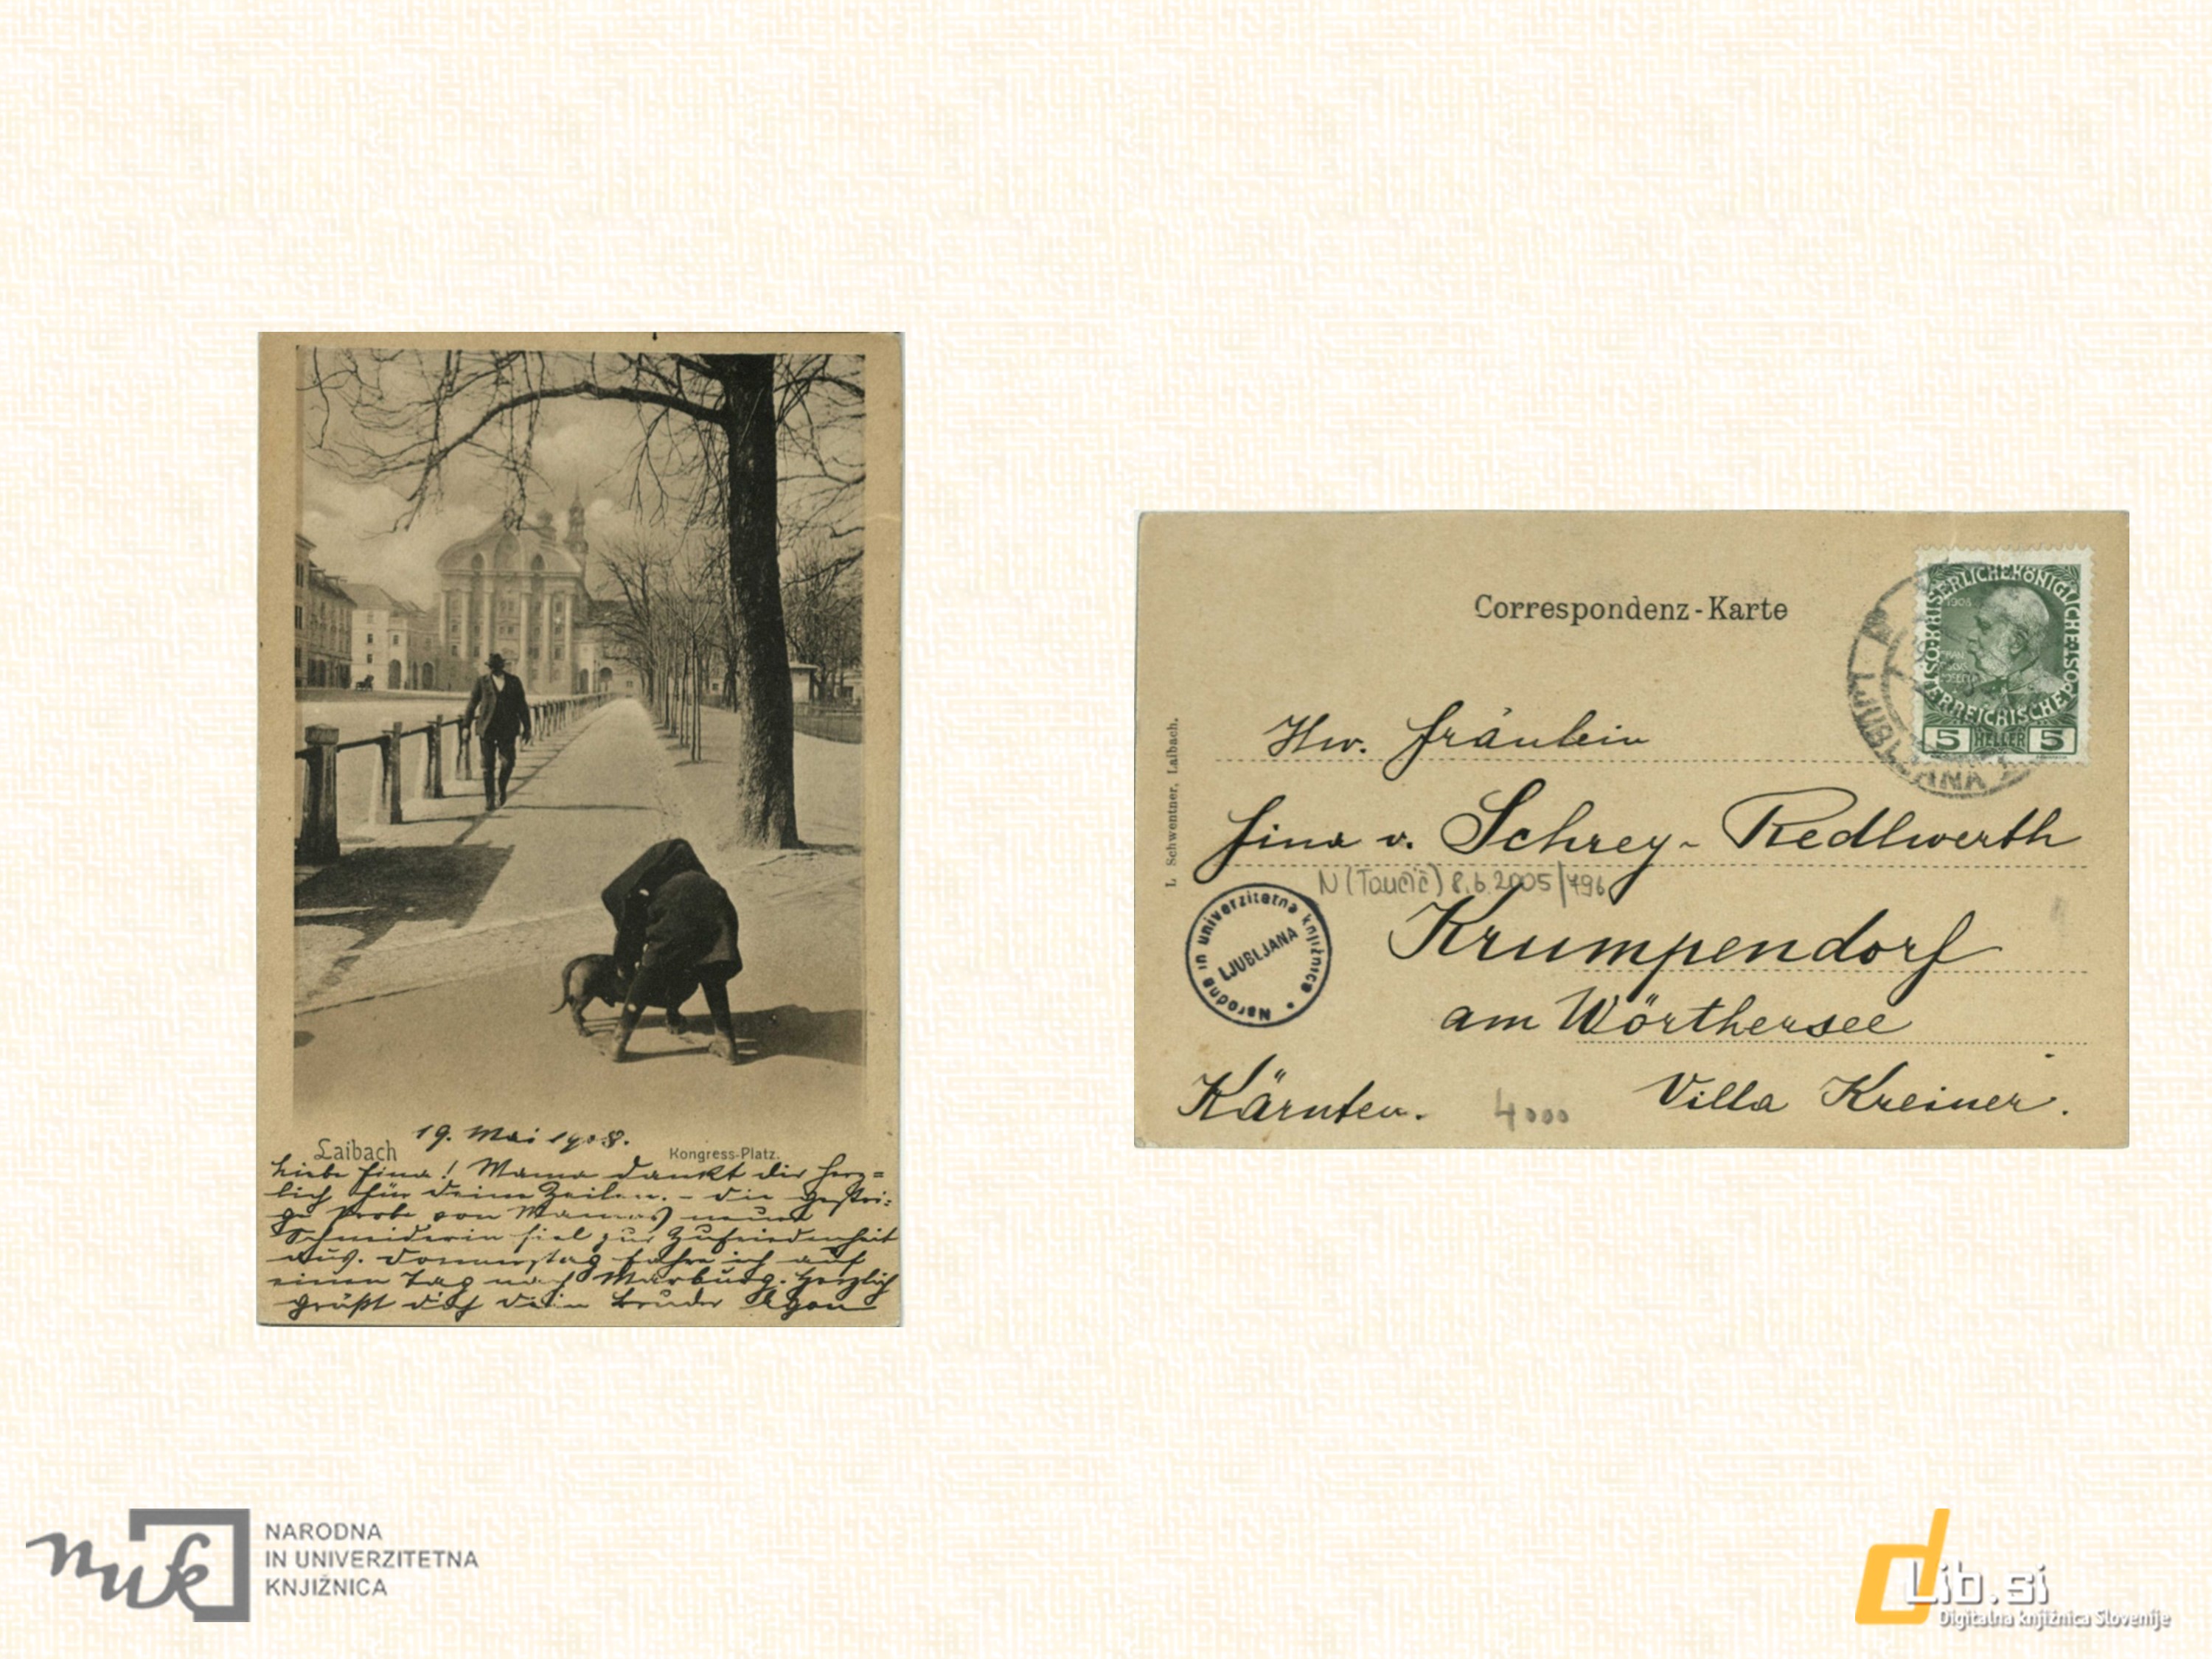 Laibach
19. Mai 1908.
Kongress-Platz.
Liebe Fina! Mama dankt dir herz=
lich für deine Zeilen. – die gestri=
ge Probe von Mamas neuer
Schneiderin fiel zur Zufriedenheit
aus. Donnerstag fahre ich auf
einen Tag nach Marburg. Herzlich
grüßt dich dein Bruder Egon
Correspondenz-Karte
KAISERLICHE KÖNIGLICHE POST
ÖSTERREICHISCHE
1908
5 HELLER 5
LJUBLJANA
L. Schwentner, Laibach.
Fräulein
Fina v. Schrey-Redlwerth
N (Taučič) 8.6.2005/496
Narodna in univerzitetna knjižnica
LJUBLJANA
Krumpendorf
am Wörthersee
Kärnten.
4000
Villa Kreiner.
nuk
NARODNA
IN UNIVERZITETNA
KNJIŽNICA
dLib.si
Digitalna knjižnica Slovenije